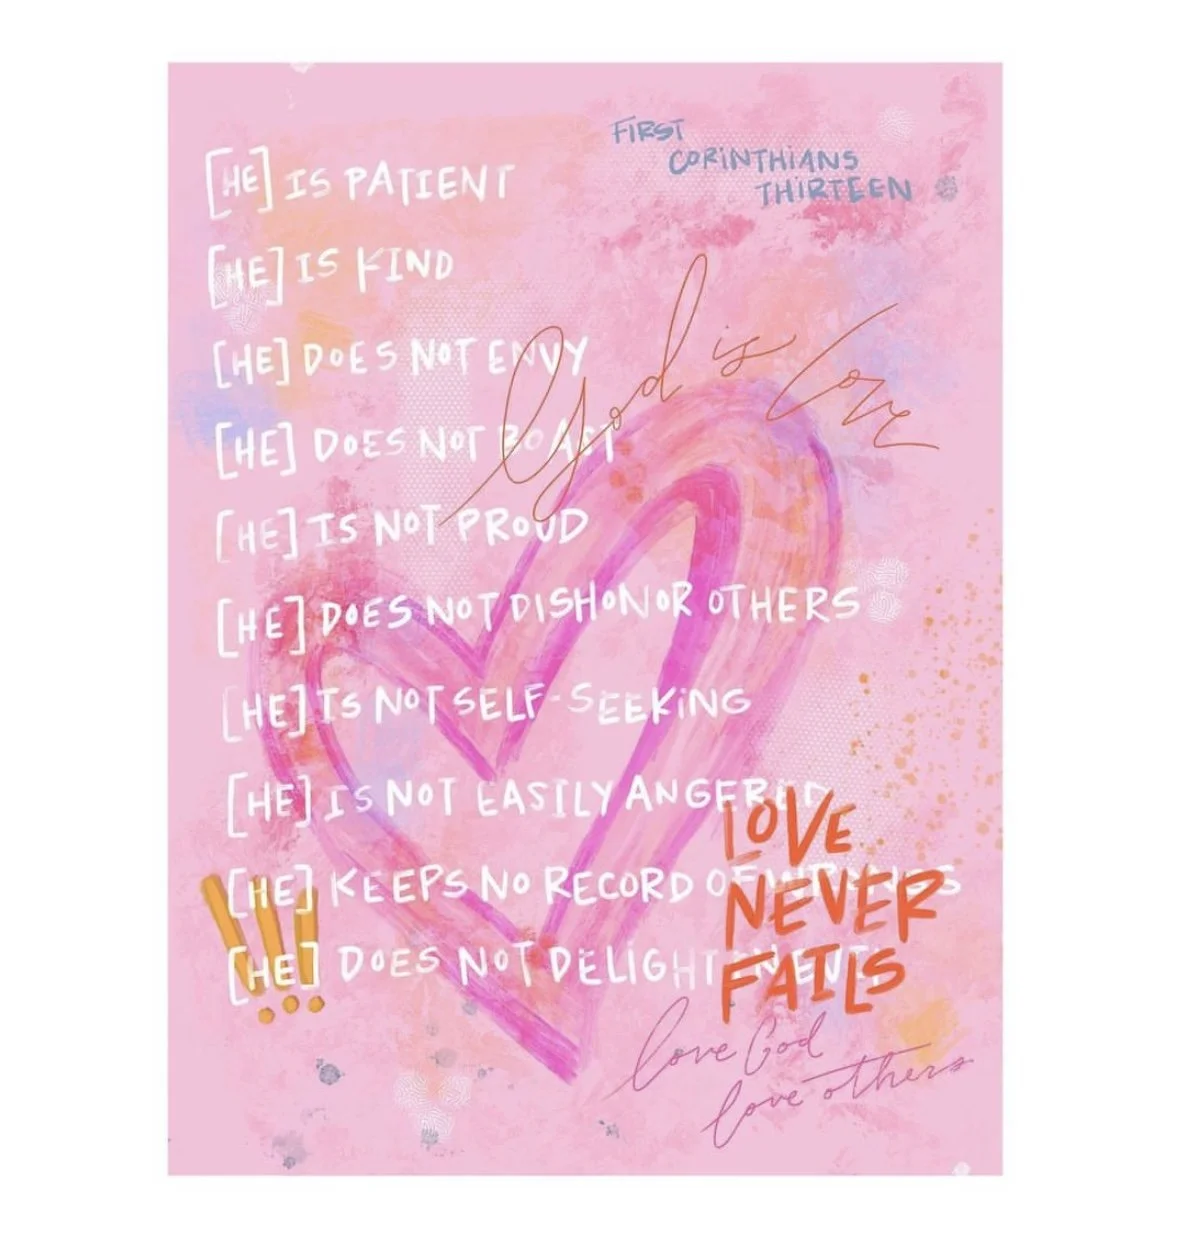 FIRST
CORINTHIANS
THIRTEEN
[HE] IS PATIENT
[HE] IS KIND
God is Love
[HE] DOES NOT ENVY
[HE] DOES NOT BOAST
[HE] IS NOT PROUD
[HE] DOES NOT DISHONOR OTHERS
[HE] IS NOT SELF-SEEKING
[HE] IS NOT EASILY ANGERED
[HE] KEEPS NO RECORD OF WRONGS
!!! [HE] DOES NOT DELIGHT IN EVIL
LOVE
NEVER
FAILS
love God
love others